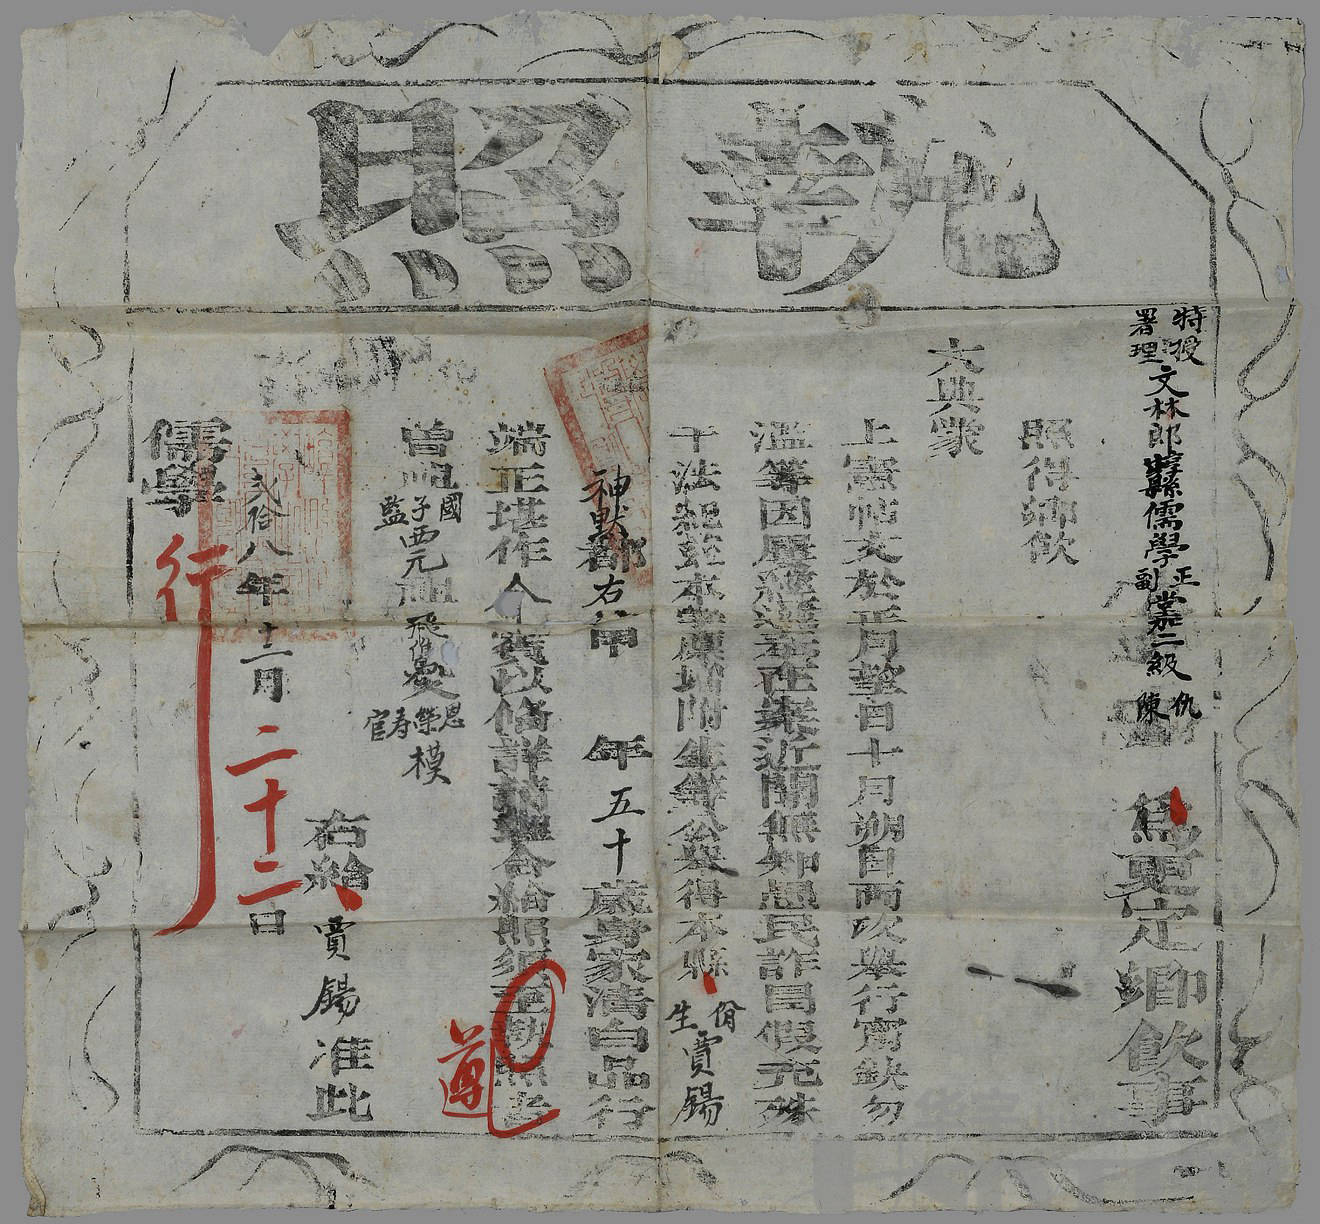 執照
特授署理文林郎㟭縣儒學正副堂加二級仇陳 為更定鄉飲事
照得鄉飲
大典蒙
上憲帖文於正月望日十月朔日兩次舉行寧缺勿
濫等因歷經遵奉在案近聞無知愚民詐冒假充殊
干法紀茲本學廩增附生等公舉得本縣佾生賈錫
神默都右甲 年五十歲身家清白品行
端正堪作介賓以俻詳請憲合給照須至執照者
曾祖國子監西元祖飛俊父恩榮壽官模
右給賈錫准此
貳拾八年十二月二十二日
儒學 行
遵